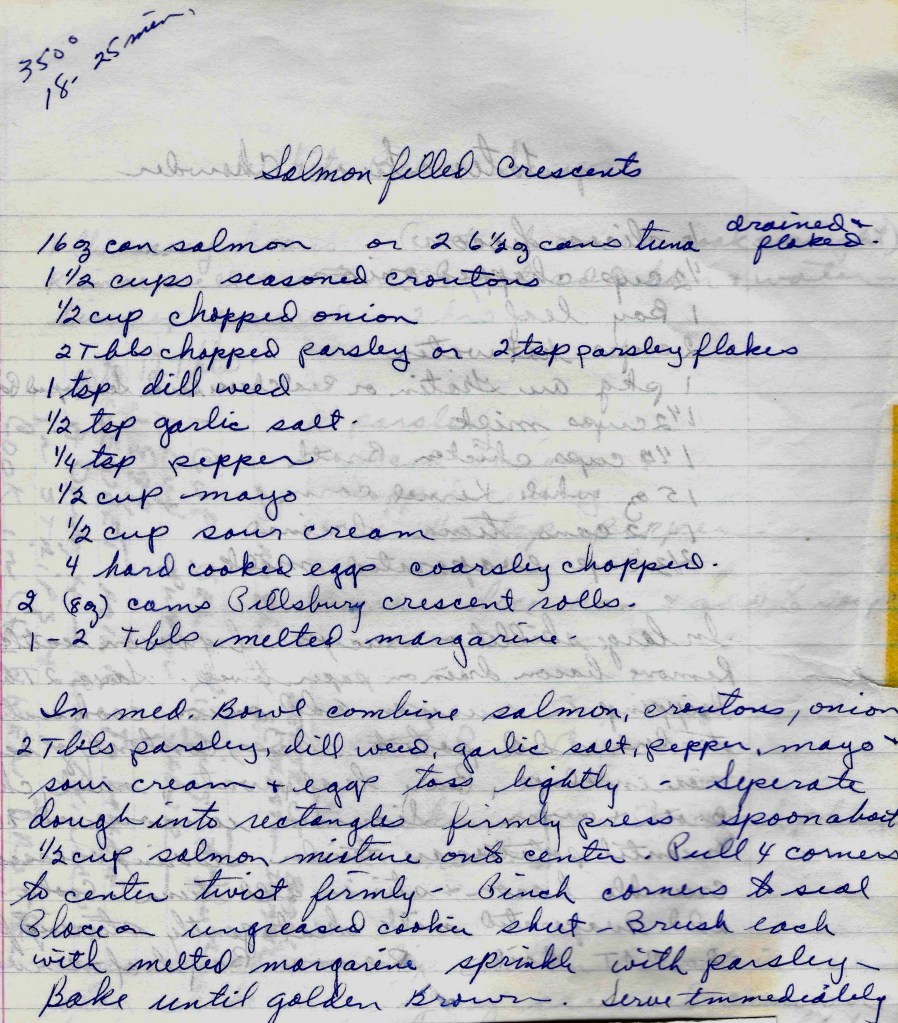 350°
18- 25 min,
Salmon filled Crescents
16 oz can salmon or 2 6 1/2 oz cans tuna drained + flaked.
1 1/2 cups seasoned croutons
1/2 cup chopped onion
2 Tbls chopped parsley or 2 tsp parsley flakes
1 tsp dill weed
1/2 tsp garlic salt.
1/4 tsp pepper
1/2 cup mayo
1/2 cup sour cream
4 hard cooked eggs coarsley chopped.
2 (8 oz) cans Pillsbury crescent rolls.
1 - 2 Tbls melted margarine -
In med. Bowl combine salmon, croutons, onion
2 Tbls parsley, dill weed, garlic salt, pepper, mayo +
sour cream + eggs toss lightly - Seperate
dough into rectangles firmly press Spoon about
1/2 cup salmon mixture onto center. Pull 4 corners
to center twist firmly - Pinch corners to seal
Place on ungreased cookie sheet - Brush each
with melted margarine sprinkle with parsley -
Bake until golden Brown. Serve immediately